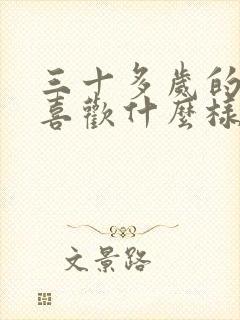 三十多歲的
喜歡什麼樣
文景路